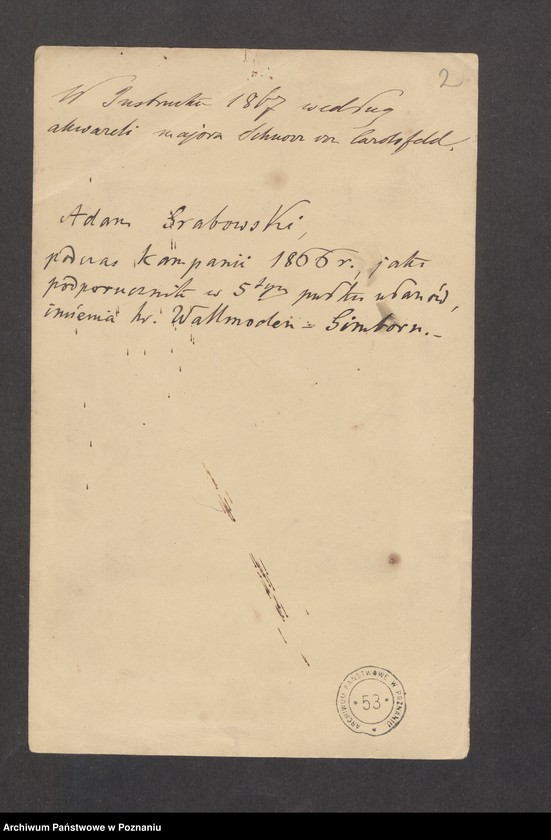 2
W Insbruku 1867 według
akwareli majora Schnorr von Carolsfeld.
Adam Grabowski,
podczas kampanii 1866 r., jako
podporucznik w 5tym pułku ułanów,
imienia hr. Wallmoden = Gimborn.–
ARCHIWUM PAŃSTWOWE W POZNANIU
* 53 *
© Archiwum Państwowe w Poznaniu